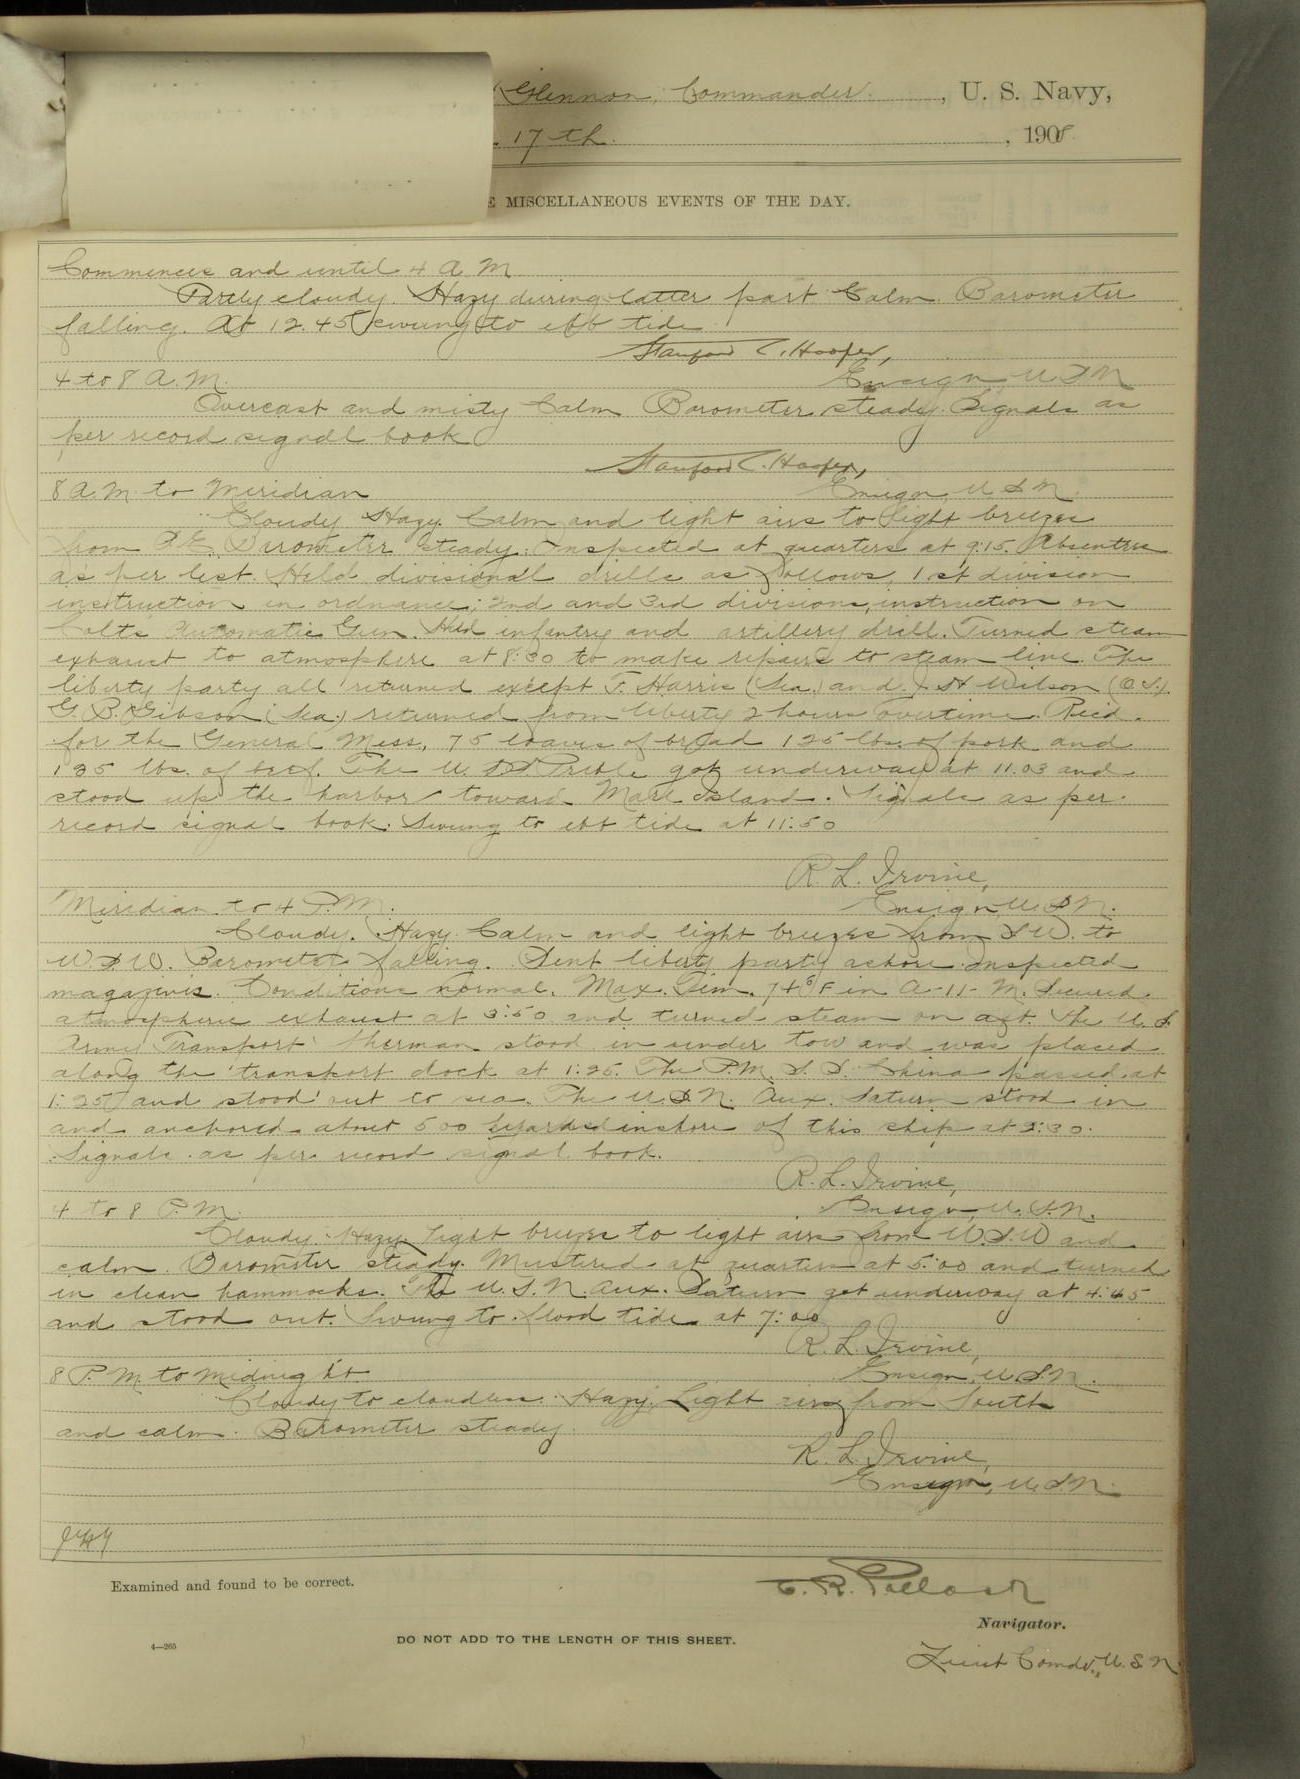 Glennon, Commander, U. S. Navy,
17th. , 1908
MISCELLANEOUS EVENTS OF THE DAY.
Commences and until 4 A. M
Partly cloudy. Hazy during latter part. Calm. Barometer
falling. At 12.45 swung to ebb tide.
Stanford C. Hooper,
4 to 8 A. M.
Ensign, U S N
Overcast and misty Calm Barometer steady. Signals as
per record signal book
Stanford C. Hooper,
8 A. M. to Meridian
Ensign, U S N.
Cloudy Hazy. Calm and light airs to light breezes
from S.E. Barometer steady. Inspected at quarters at 9:15. Absentees
as per list. Held divisional drills as follows, 1st division
instruction in ordnance; 2nd and 3rd divisions, instruction on
Colts Automatic Gun. Held infantry and artillery drill. Turned steam
exhaust to atmosphere at 8:30 to make repairs to steam line. The
liberty party all returned except F. Harris (Sea.) and J. H Wilson (O.S.).
G. B. Gibson (Sea.) returned from liberty 2 hours overtime. Rec'd.
for the General Mess, 75 loaves of bread 125 lbs. of pork and
135 lbs. of beef. The U. S. S. Preble got underway at 11.03 and
stood up the harbor toward Mare Island. Signals as per
record signal book. Swung to ebb tide at 11:50
R. L. Irvine,
Meridian to 4 P. M.
Ensign, U. S. N.
Cloudy. Hazy. Calm and light breezes from S W. to
W. S. W. Barometer falling. Sent liberty party ashore. Inspected
magazines. Conditions normal. Max. Tem. 74° F in A-11-M. Secured
atmospheric exhaust at 3:50 and turned steam on aft. The U. S.
Army Transport Sherman stood in under tow and was placed
along the transport dock at 1:25. The P. M. S. S. China passed at
1:25 and stood out to sea. The U. S. N. Aux. Saturn stood in
and anchored about 500 yards inshore of this ship at 2:30.
Signals as per record signal book.
R. L. Irvine,
4 to 8 P. M.
Ensign, U. S. N.
Cloudy. Hazy. Light breezes to light airs from W. S. W and
calm. Barometer steady. Mustered at quarters at 5:00 and turned
in clean hammocks. The U. S. N. Aux. Saturn got underway at 4:45
and stood out. Swung to flood tide at 7:00
R. L. Irvine,
8 P. M. to Midnight
Ensign, U. S. N.
Cloudy to cloudless. Hazy. Light airs from South
and calm. Barometer steady.
R. L. Irvine,
Ensign, U. S. N.
Examined and found to be correct.
C. R. Pollock
Navigator.
4—265
DO NOT ADD TO THE LENGTH OF THIS SHEET.
Lieut Comdr., U. S N.